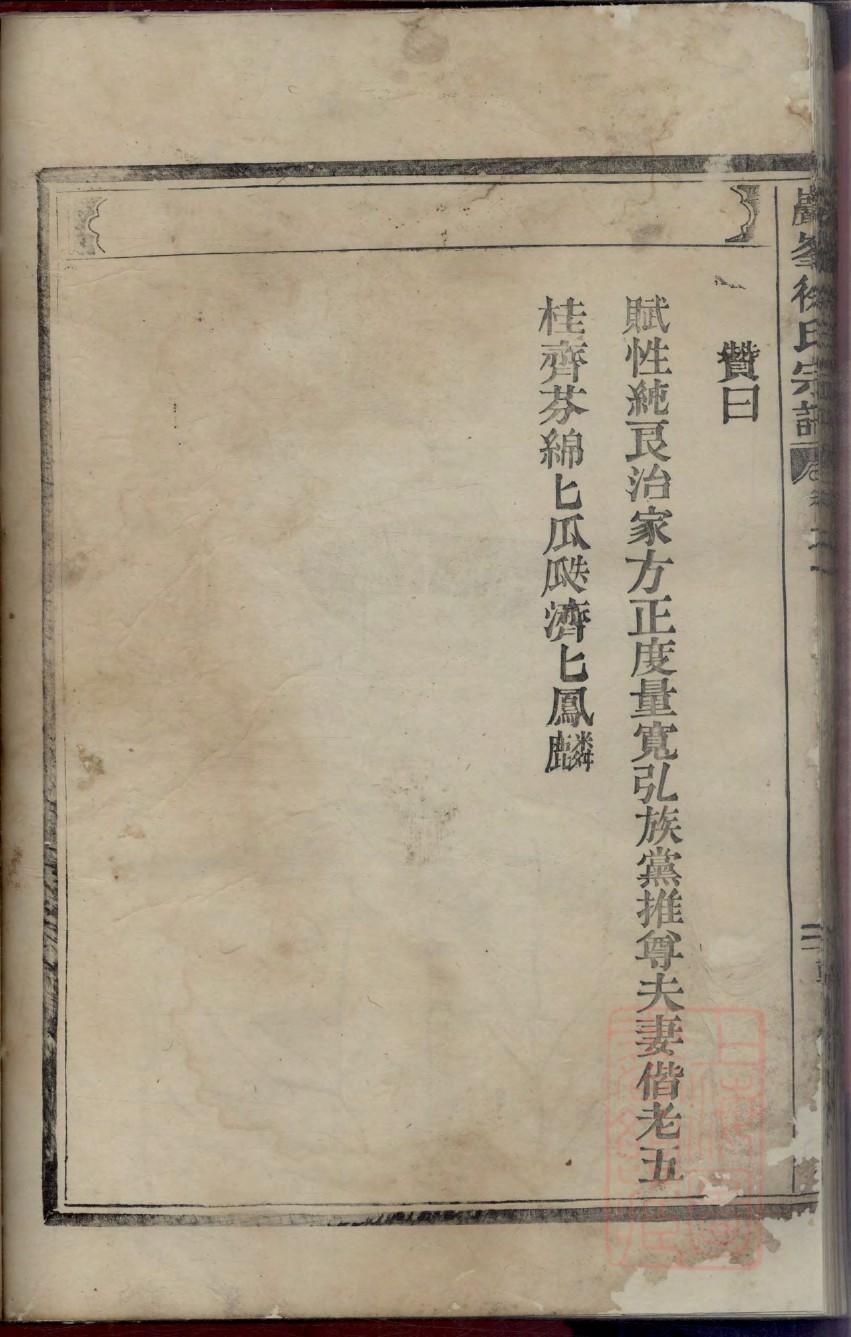 巖峯徐氏宗譜
贊曰
賦性純良治家方正度量寬弘族黨推尊夫妻偕老五
桂齊芬綿匕瓜瓞濟匕鳳麟